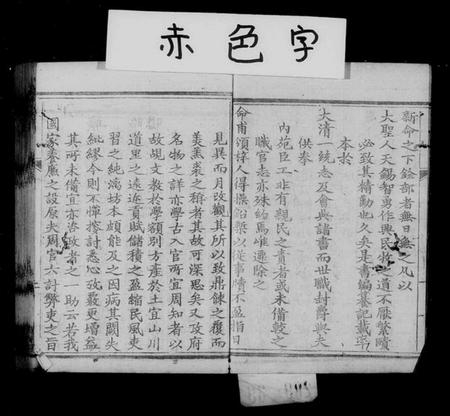 赤色字
新命之下銓部者無日無之凡以
大聖人天錫智勇作興民牧之道不厭繁賾
必致其精動也久矣是書編纂記載率
本於
大清一統志及會典諸書而世職封爵與夫
內苑臣工非有親民之責者或未備載之
供奉
職官志亦殊約焉唯遵除之
命甫頒梓人得操鉛槧以從事牘不盈指日
見異而月改觀其所以致鼎餗之覆而
美熏裘之稱者其故可深思矣又政府
名物之詳亦學古入官所宜周知者以
故覘文教於學額別方產於土宜山川
道里之遠近貢賦儲積之盈縮民風吏
習之純澆坊本頗能及之因病其闕失
紕繆今則不憚搜討悉心攷覈更增益
其所未備宜亦咨政者之一助云若我
國家養廉之設原夫周官六計弊吏之旨